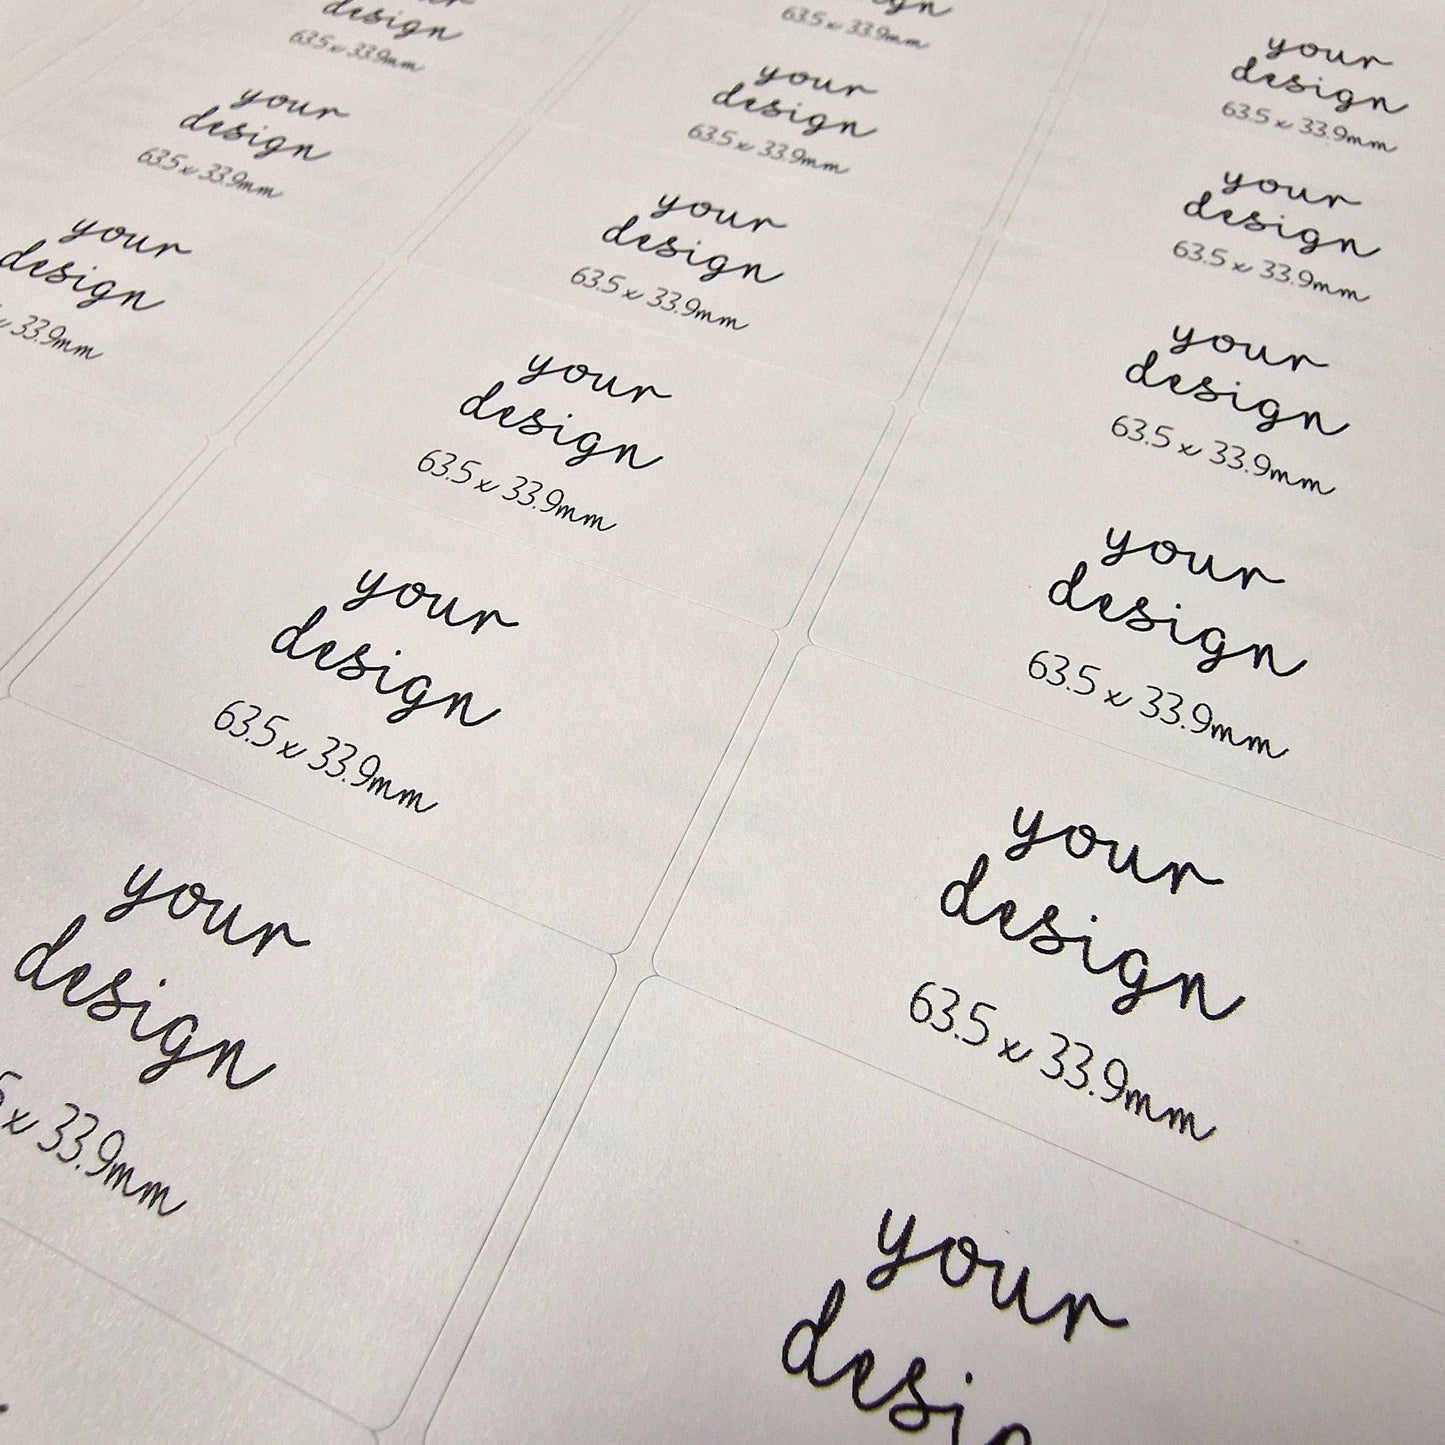 design
63.5 x 33.9mm
your
design
63.5 x 33.9mm
your
design
x 33.9mm
63.5 x 33.9mm
your
design
63.5 x 33.9mm
your
design
63.5 x 33.9mm
your
design
63.5 x 33.9mm
your
design
63.5 x 33.9mm
your
design
5 x 33.9mm
your
design
63.5 x 33.9mm
your
design
63.5 x 33.9mm
your
design
63.5 x 33.9mm
your
design
63.5 x 33.9mm
your
design
63.5 x 33.9mm
your